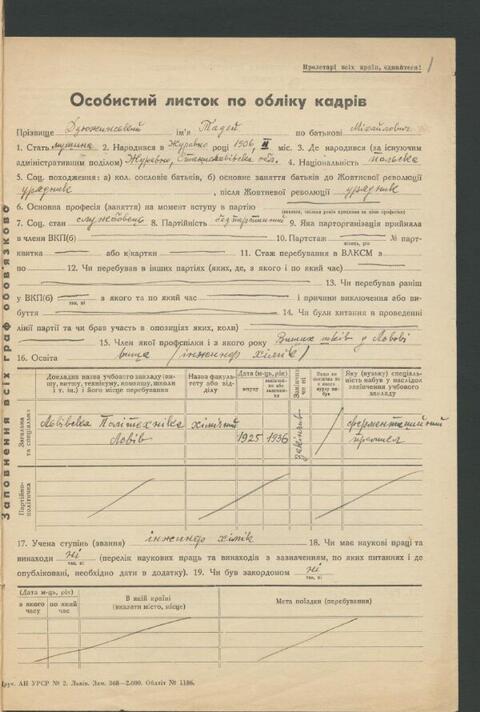 Пролетарі всіх країн, єднайтеся!
1
Особистий листок по обліку кадрів
Прізвище ім'я Тадей по батькові Михайлович
1. Стать мушина 2. Народився в Журавно році 1906, II міс. 3. Де народився (за існуючим
адміністративним поділом) Журавно, Станиславівська обл. 4. Національність польська
5. Соц. походження: а) кол. сословів батьків, б) основне заняття батьків до Жовтневої революції
урядник, після Жовтневої революції урядник
6. Основна професія (заняття) на момент вступу в партію
7. Соц. стан службовець 8. Партійність безпартійний 9. Яка парторганізація прийняла
в члени ВКП(б) 10. Партстаж № парт-
квитка або к/картки 11. Стаж перебування в ВЛКСМ з
по 12. Чи перебував в інших партіях (яких, де, з якого і по який час)
13. Чи перебував раніш
у ВКП(б) з якого та по який час і причини виключення або ви-
буття 14. Чи були хитання в проведенні
лінії партії та чи брав участь в опозиціях яких, коли)
15. Член якої профспілки і з якого року Вищих шків у Львові
16. Освіта вища (інженер хімік)
Докладна назва учбового закладу (ви-
шу, втишу, технікуму, комвищу, школи
і т. ін.) і його місце перебування
Назва факуль-
тету або від-
ділу
Дата (м-ць, рік)
вступу
закінчен-
ня або
залишення
Закінчив
чи ні
Яку (вузьку) спеціаль-
ність набув у наслідок
закінчення учбового
закладу
Загальна
та спеціальна
Львівська Політехніка
Львів
хімічний
1925 1936
закінчив
ферментаційний
промисл
Партійно-
політична
17. Учена ступінь (звання) інженер хімік 18. Чи має наукові праці та
винаходи ні (перелік наукових праць та винаходів з зазначенням, по яких питаннях і де
опубліковані, необхідно дати в додатку). 19. Чи був закордоном ні
(Дата м-ць, рік)
в якого
часу
по який
час
В якій країні
(вказати місто, місце)
Мета поїздки (перебування)
Друк. АН УРСР № 2. Львів. Зам. 368—2.000. Обліліт № 1186.
Заповнення всіх граф обов'язково